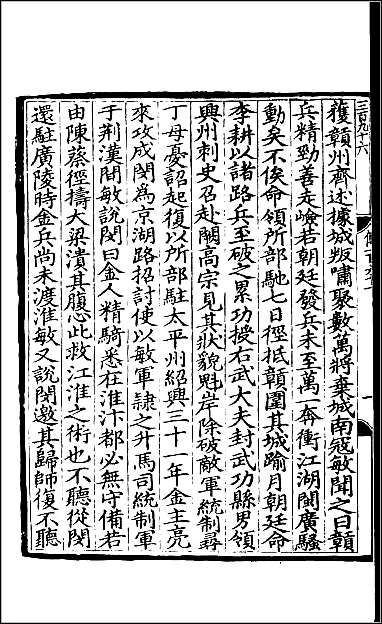 獲贛州齊述據城叛嘯聚數萬將棄城南冦敏聞之曰贛
兵精勁善走嶮若朝廷發兵未至萬一奔衝江湖閩廣騷
動矣不俟命領所部馳七日徑抵贛圍其城踰月朝廷命
李耕以諸路兵至破之累功授右武大夫封武功縣男領
興州刺史召赴闕高宗見其狀貌魁岸除破敵軍統制尋
丁母憂詔起復以所部駐太平州紹興三十一年金主亮
來攻成閔為京湖路招討使以敏軍隷之升馬司統制軍
于荆漢閒敏說閔曰金人精騎悉在淮汴都必無守備若
由陳蔡徑擣大梁潰其腹心此救江淮之術也不聽從閔
還駐廣陵時金兵尚未渡淮敏又說閔邀其歸師復不聽
三百九十六